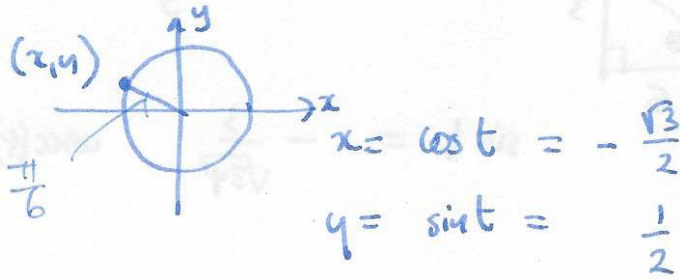 y
(x,y)
x
π/6
x = cos t = - √3/2
y = sin t = 1/2